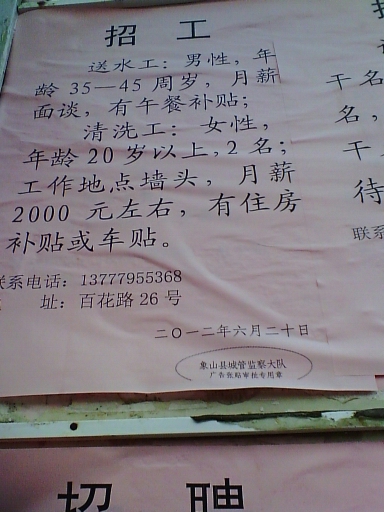 招 工
送水工：男性，年
龄 35—45 周岁，月薪
面谈，有午餐补贴；
清洗工：女性，
年龄 20 岁以上，2 名；
工作地点墙头，月薪
2000 元左右，有住房
补贴或车贴。
联系电话：13777955368
址：百花路 26 号
二〇一二年六月二十日
象山县城管监察大队
广告张贴审批专用章
干名
名，
干
待
联系
招 聘